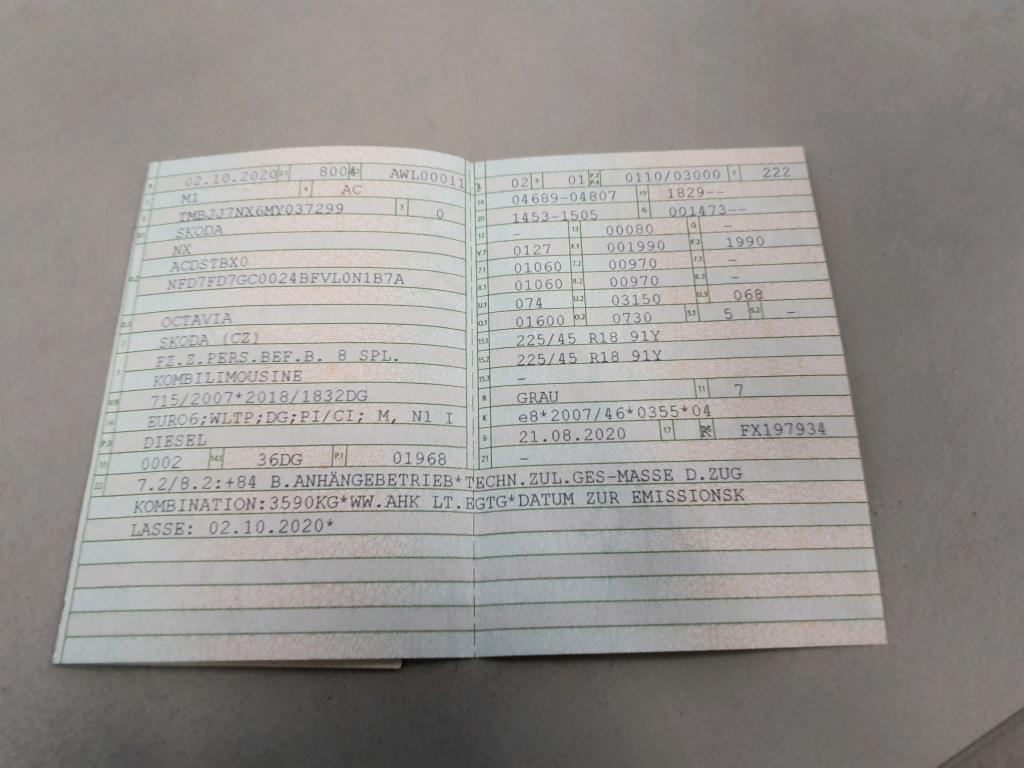 B 02.10.2020 2.1 8004 2.2 AWL00011
J M1 4 AC
E TMBJJ7NX6MY037299 3 0
D.1 SKODA
NX
D.2 ACDSTBX0
NFD7FD7GC0024BFVL0N1B7A
D.3 OCTAVIA
2 SKODA (CZ)
5 FZ.Z.PERS.BEF.B. 8 SPL.
KOMBILIMOUSINE
V.9 715/2007*2018/1832DG
14 EURO6;WLTP;DG;PI/CI; M, N1 I
P.3 DIESEL
10 0002 14.1 36DG P.1 01968
L 02 9 01 P.2 P.4 0110/03000 T 222
18 04689-04807 19 1829--
20 1453-1505 G 001473--
12 - 13 00080 Q -
V.7 0127 F.1 001990 F.2 1990
7.1 01060 7.2 00970 7.3 -
8.1 01060 8.2 00970 8.3 -
U.1 074 U.2 03150 U.3 068
O.1 01600 O.2 0730 S.1 5 S.2 -
15.1 225/45 R18 91Y
15.2 225/45 R18 91Y
15.3 -
R GRAU 11 7
K e8*2007/46*0355*04
6 21.08.2020 17 K 16 FX197934
21 -
22 7.2/8.2:+84 B.ANHÄNGEBETRIEB*TECHN.ZUL.GES-MASSE D.ZUG
KOMBINATION:3590KG*WW.AHK LT.EGTG*DATUM ZUR EMISSIONSK
LASSE: 02.10.2020*